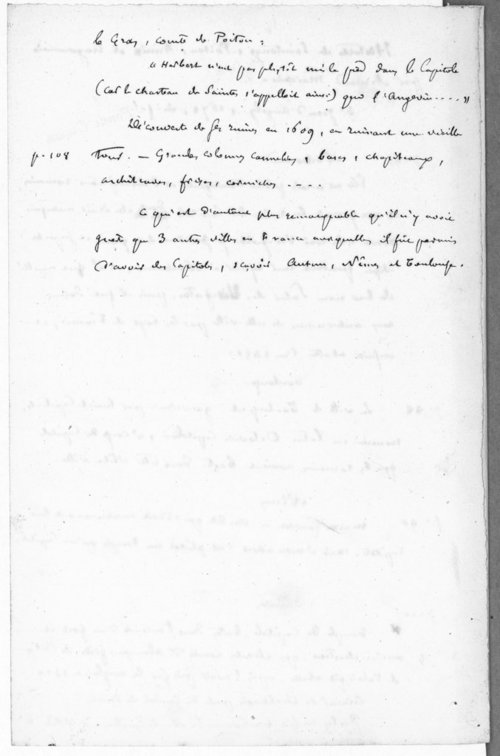 le Gras, comte de Poitou :
« Herbert n'eut pas plustôt mis le pied dans le Capitole
(car le chasteau de Saintes s'appelloit ainsi) que l'Angevin .... »
Découverte de ses ruines en 1609, en ruinant une vieille
p. 108 Tour. — Grandes colonnes cannelées, bases, chapiteaux,
architraves, frises, corniches ....
Ce qui est d'autant plus remarquable qu'il n'y avoit
que 3 autres villes en France auxquelles il fût permis
d'avoir des Capitoles, sçavoir Autun, Nîmes et Toulouse.